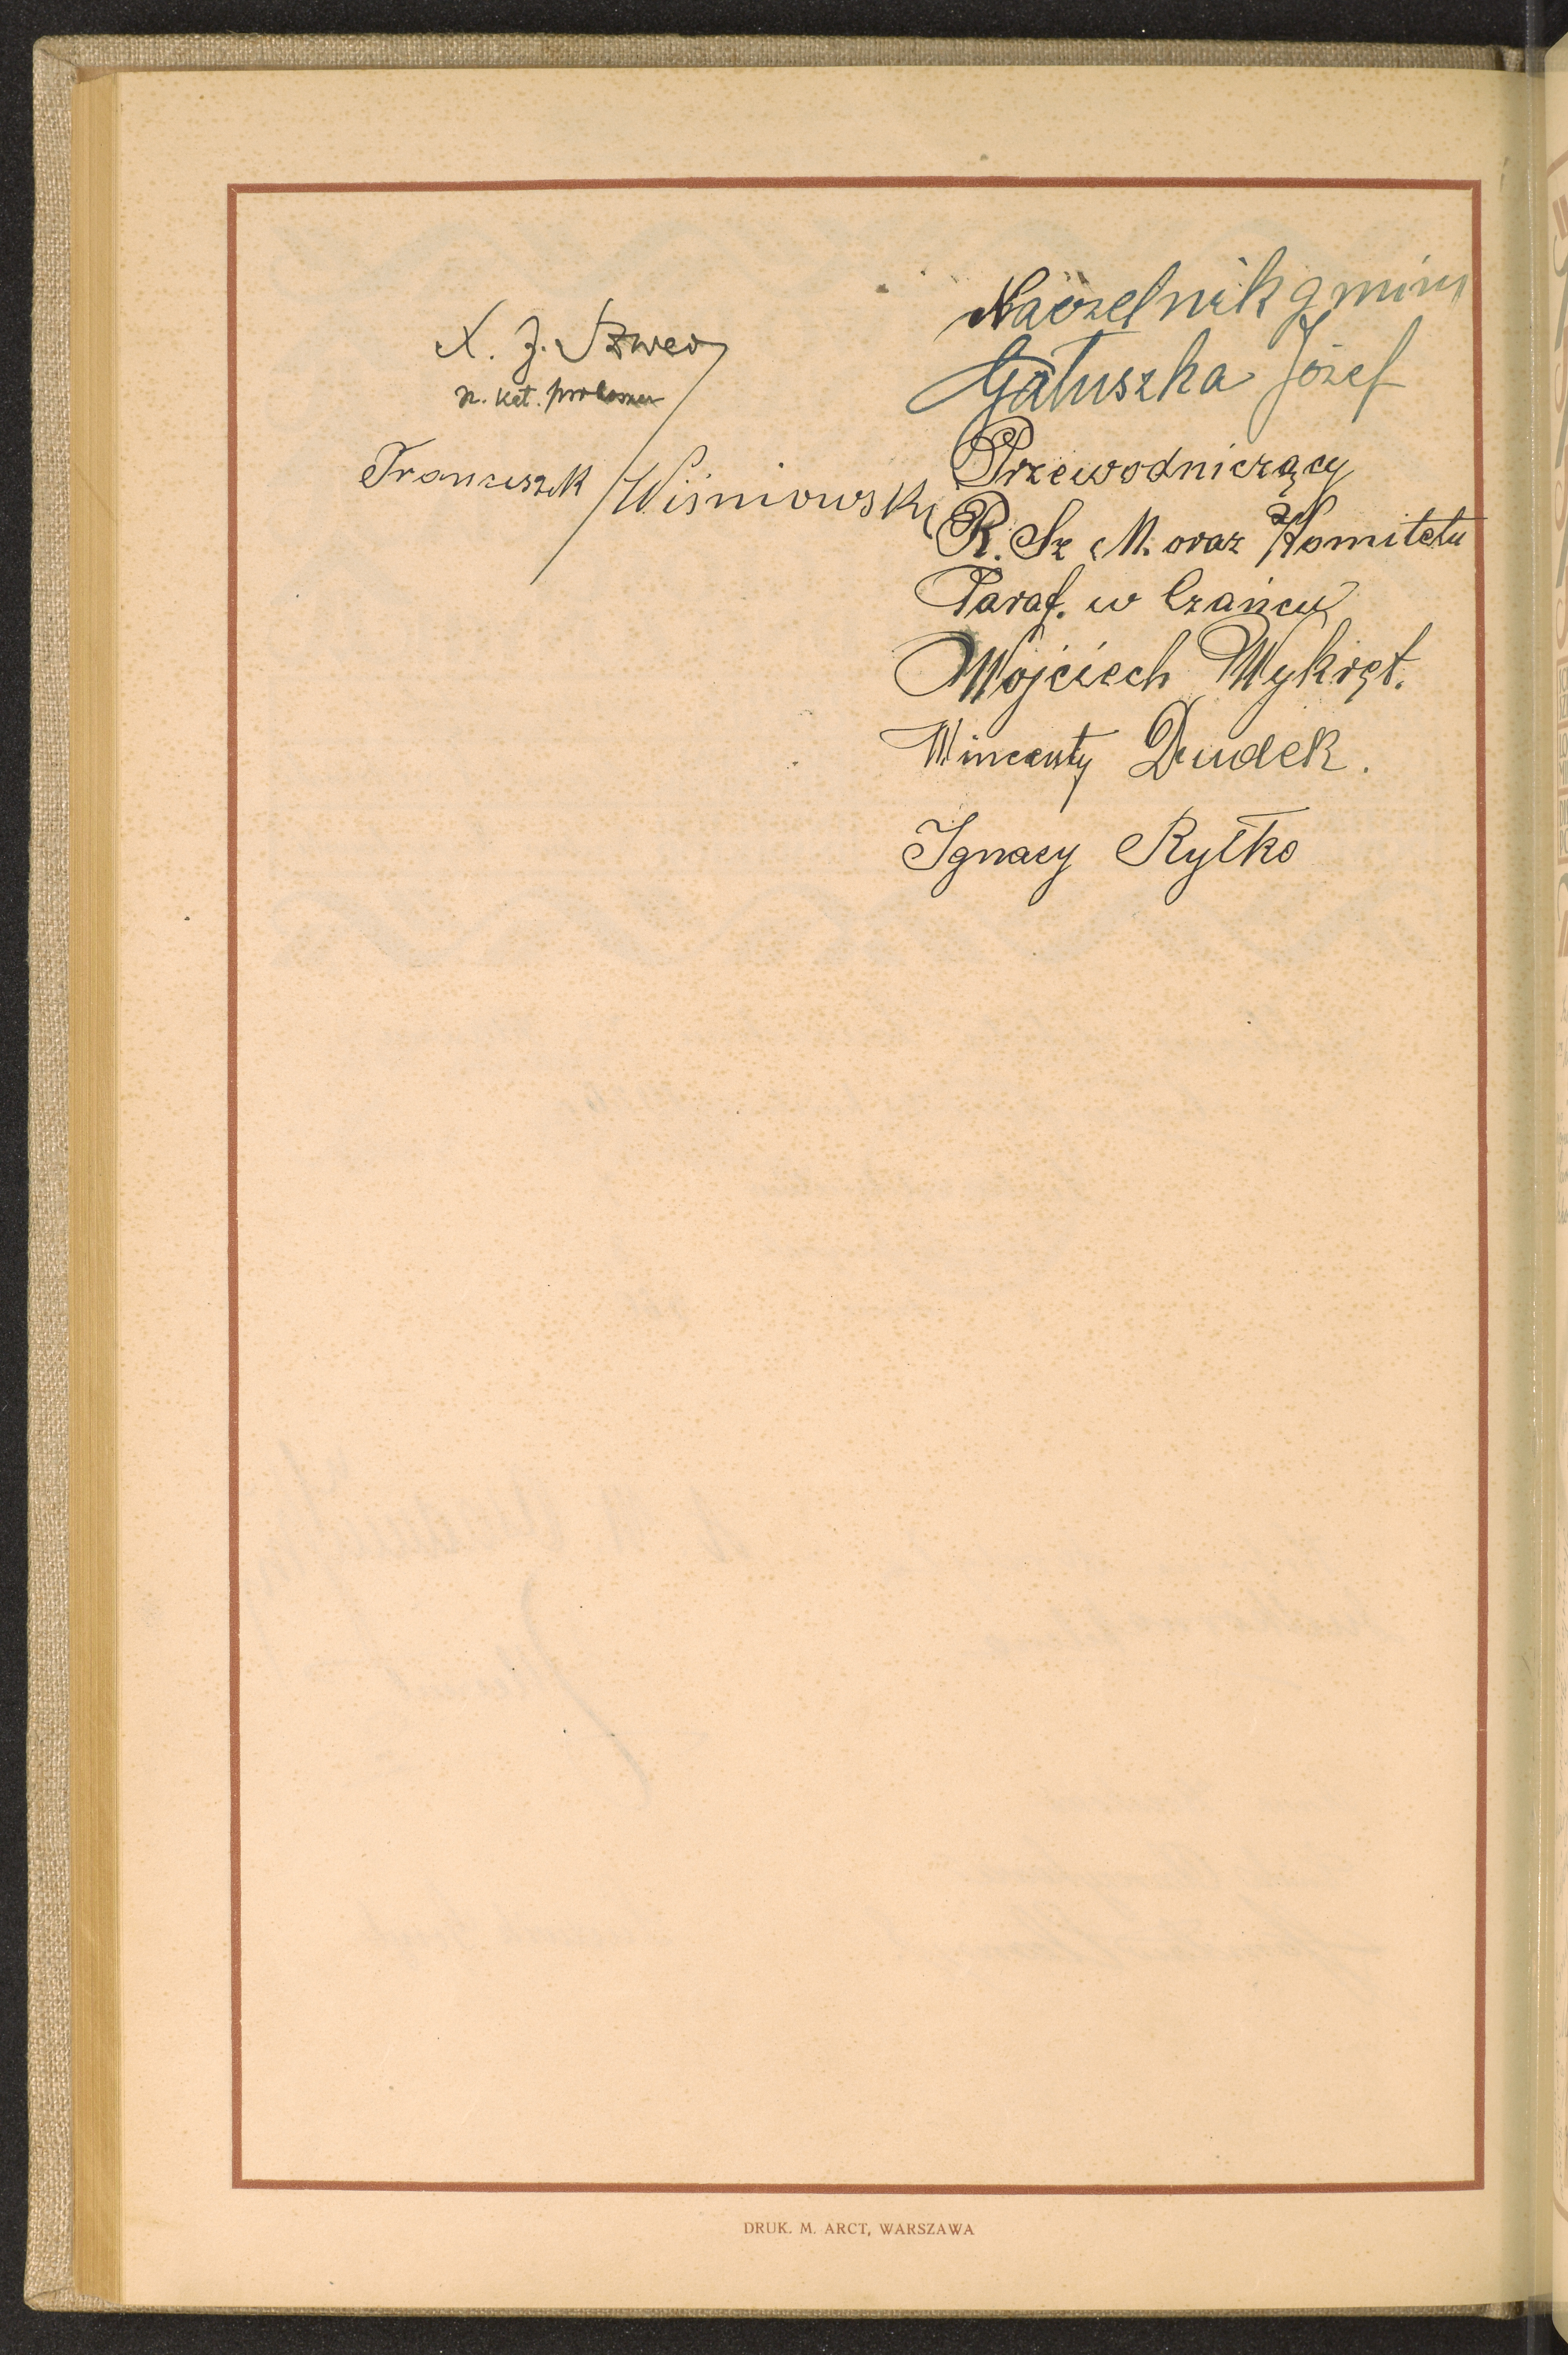 X. J. Szwed
r. kat. proboszcz
Franciszek Wiśniowski
Naczelnik gminy
Gałuszka Józef
Przewodniczący
R. Sz. M. oraz Komitetu
Paraf. w Czańcu
Wojciech Wykręt.
Wincenty Dudek.
Ignacy Ryłko
DRUK. M. ARCT, WARSZAWA